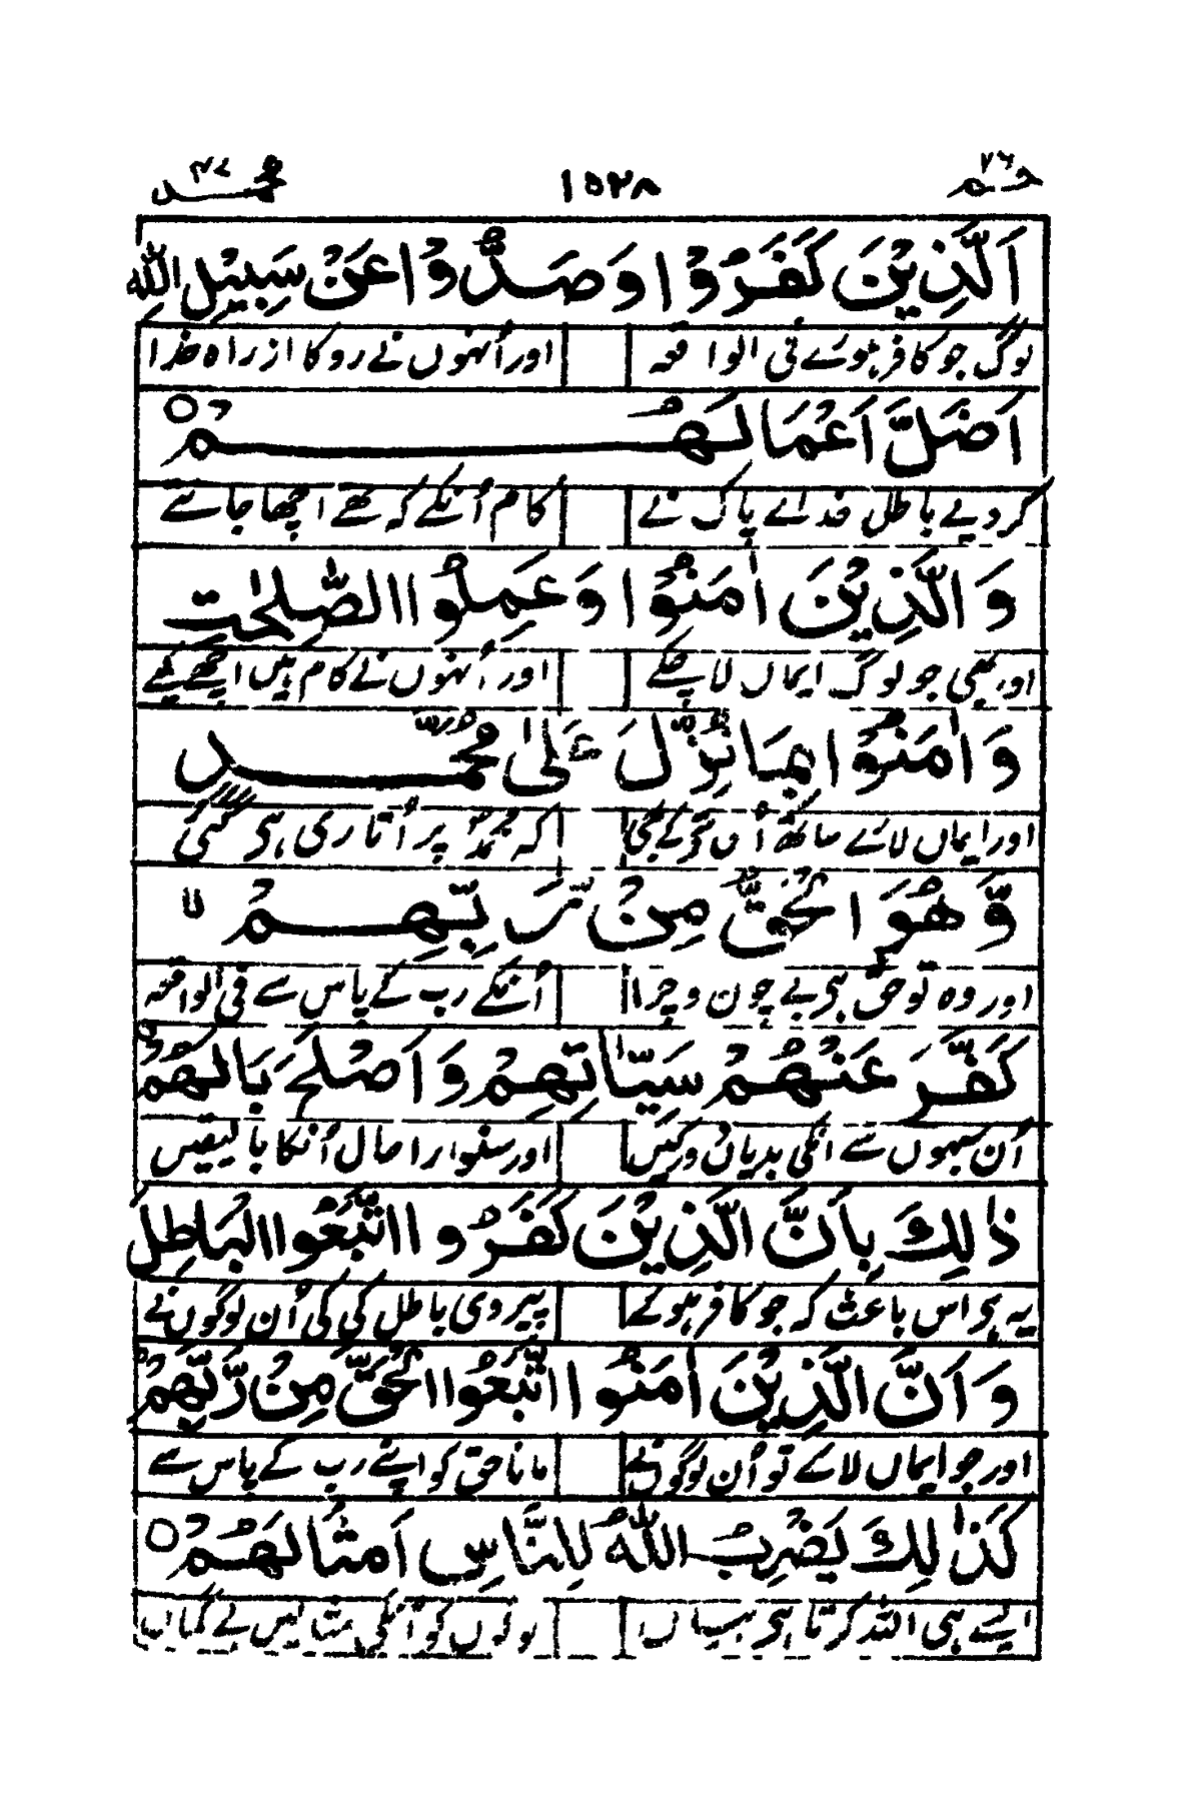 حٰم ٢٦ ١٥٢٨ محمد ٤٧
اَلَّذِيْنَ كَفَرُوْا وَصَدُّوْا عَنْ سَبِيْلِ اللّٰهِ
لوگ جو کافر ہوئے فی الواقعہ اور اُنہوں نے روکا از راہ خدا
اَضَلَّ اَعْمَالَهُمْ ○
کر دیے باطل خداے پاک نے کام اُنکے کہ تھے اچھا جانتے
وَالَّذِيْنَ اٰمَنُوْا وَعَمِلُوا الصّٰلِحٰتِ
اور بھی جو لوگ ایماں لا چکے اور اُنہوں نے کام ہیں اچھے کیے
وَاٰمَنُوْا بِمَا نُزِّلَ عَلٰى مُحَمَّدٍ
اور ایماں لائے ساتھ اُس کے بھی کہ محمدؐ پر اُتاری ہی گئی
وَّهُوَ الْحَقُّ مِنْ رَّبِّهِمْ ۙ
اور وہ تو حق ہی بے چون و چرا اُنکے رب کے پاس سے فی الواقعہ
كَفَّرَ عَنْهُمْ سَيِّاٰتِهِمْ وَاَصْلَحَ بَالَهُمْ
اُن سبہوں سے انکی بدیاں دور کیں اور سنوارا حال اُنکا بالیقیں
ذٰلِكَ بِاَنَّ الَّذِيْنَ كَفَرُوا اتَّبَعُوا الْبَاطِلَ
یہ ہی اس باعث کہ جو کافر ہوئے پیروی باطل کی کی اُن لوگوں نے
وَاَنَّ الَّذِيْنَ اٰمَنُوا اتَّبَعُوا الْحَقَّ مِنْ رَّبِّهِمْ
اور جو ایماں لائے تو اُن لوگوں نے مانا حق کو اپنے رب کے پاس سے
كَذٰلِكَ يَضْرِبُ اللّٰهُ لِلنَّاسِ اَمْثَالَهُمْ ○
ایسے ہی اللہ کرتا ہی بیاں لوگوں کو اُنکی مثالیں بے گماں